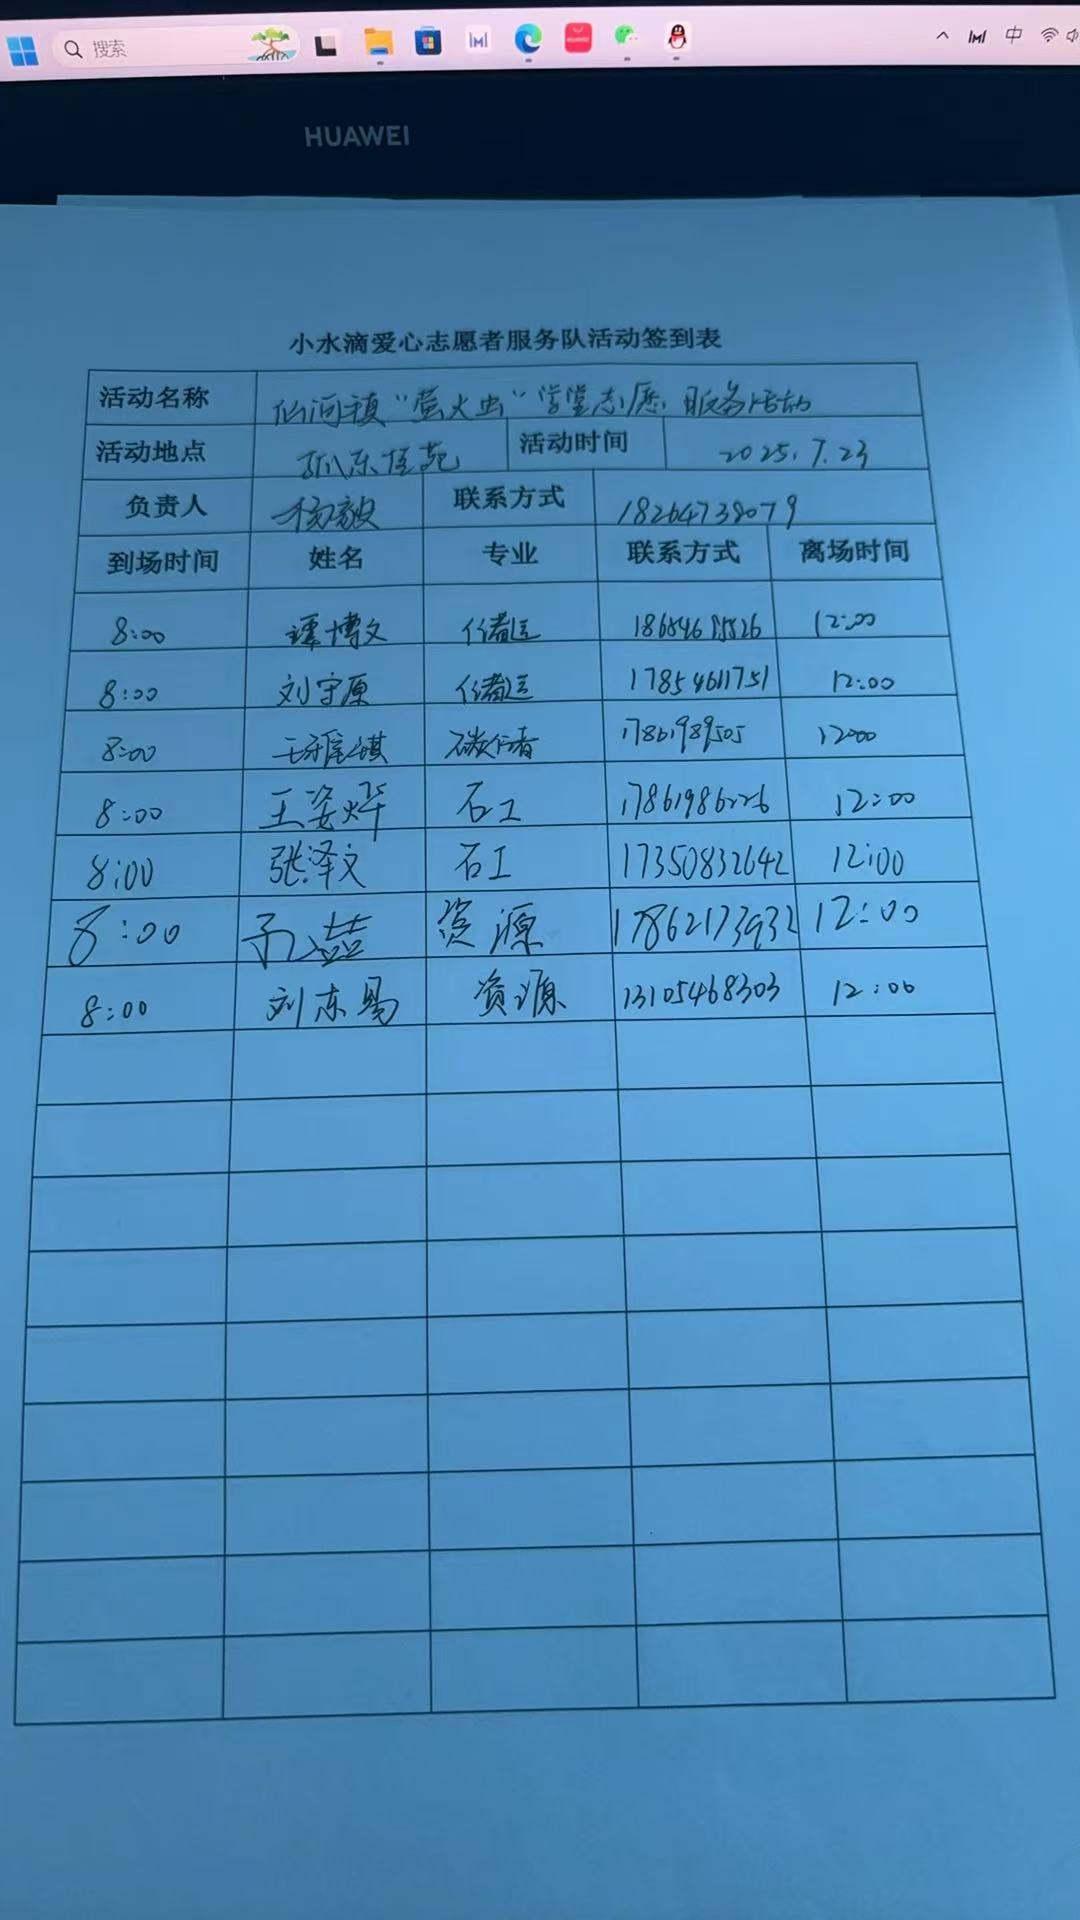 搜索
中
HUAWEI
小水滴爱心志愿者服务队活动签到表
活动名称 仙河镇“萤火虫”学堂志愿服务活动
活动地点 孤东佳苑 活动时间 2025.7.23
负责人 杨毅 联系方式 18264738079
到场时间 姓名 专业 联系方式 离场时间
8:00 博文 储运 12:00
8:00 刘宇原 储运 17854611751 12:00
8:00 碳储 17861989505 12:00
8:00 王姿烨 石工 17861986226 12:00
8:00 张泽文 石工 17350832642 12:00
8:00 孔喆 资源 17862173932 12:00
8:00 刘东易 资源 13105468303 12:00